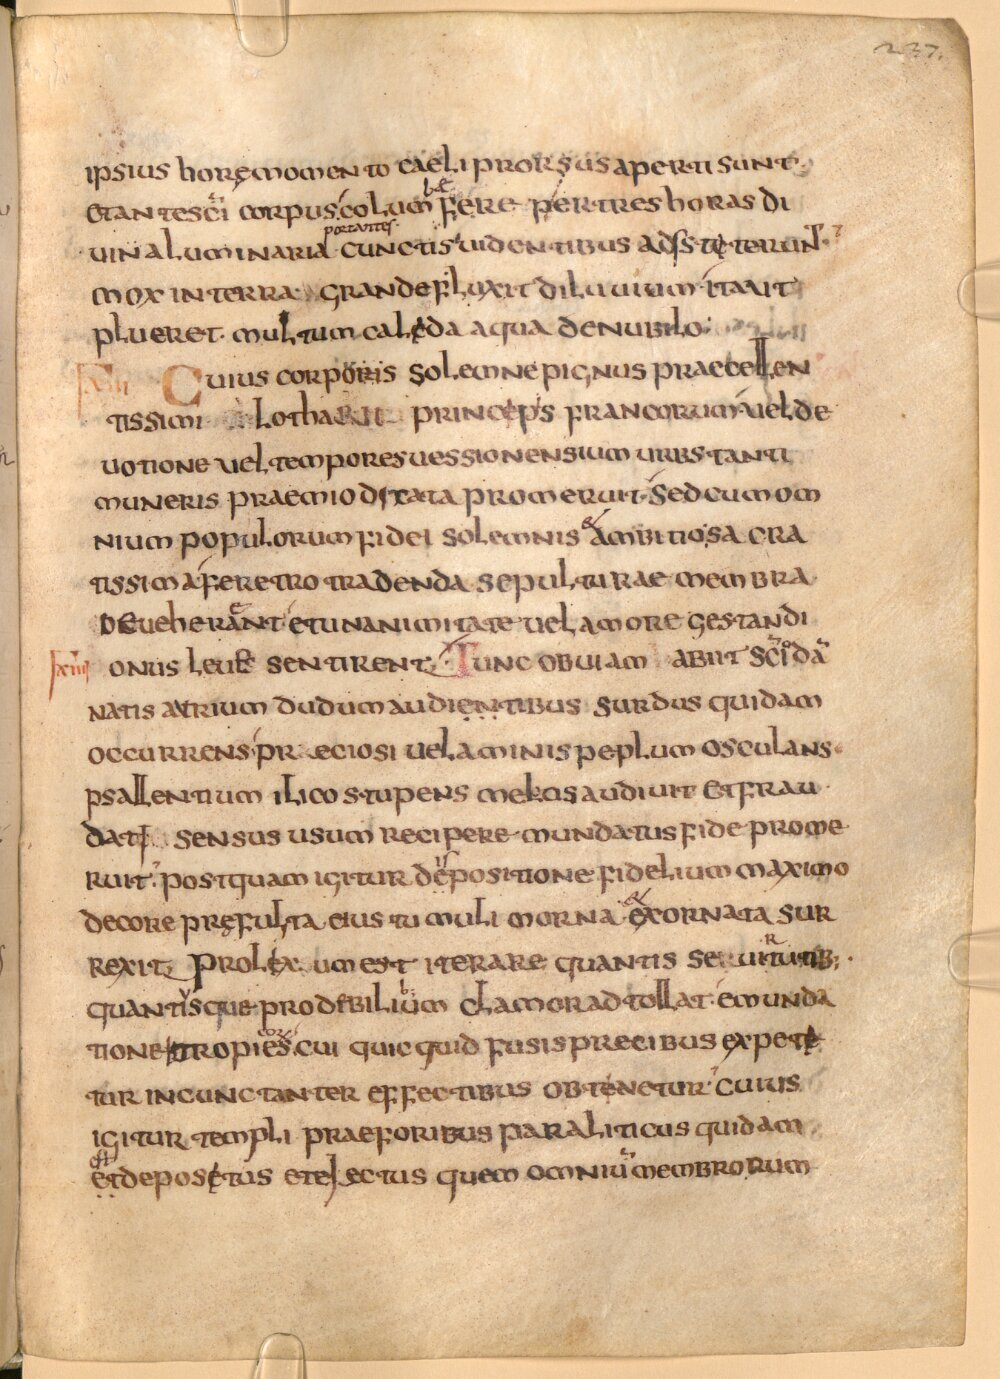 237.
ipsius horę momento caeli prorsus aperti sunt.
et antescī corpus colum fere per tres horas di
bę
uina luminaria cunctis uidentibus adsteterunt.
portantes
mox in terra grande fluxit diluuium ita ut
plueret multum calida aqua de nubilo.
xiii Cuius corporis solemne pignus praecellen
tissimi Lotharii princeps francorum uel de
uotione uel tempore suessionensium urbs tanti
muneris praemio ditata promeruit. Sed cum om
nium populorum fidei solemnis ambitiosa gra
ex
tissima feretro tradenda sepulturae membra
deueherent et unanimitate uel amore gestandi
xiiii onus leue sentirent. Tunc obuiam abiit scī dā
natis atrium dudum audientibus surdus quidam
occurrens praeciosi uelaminis peplum osculans
psallentium ilico stupens melos audiuit et frau
dati sensus usum recipere mundatus fide prome
ruit. postquam igitur depositione fidelium maximo
decore pręfulta eius tumuli morna exornata sur
ex
rexit. Prolexum est iterare quantis seruitutib;
R
quantisque pro debilium clamor adtollat emunda
tione tropies cui quicquid fusis precibus expete
tur incunctanter effectibus obtenetur cuius
igitur templi prae foribus paraliticus quidam
est
et depositus et electus quem omniū membrorum